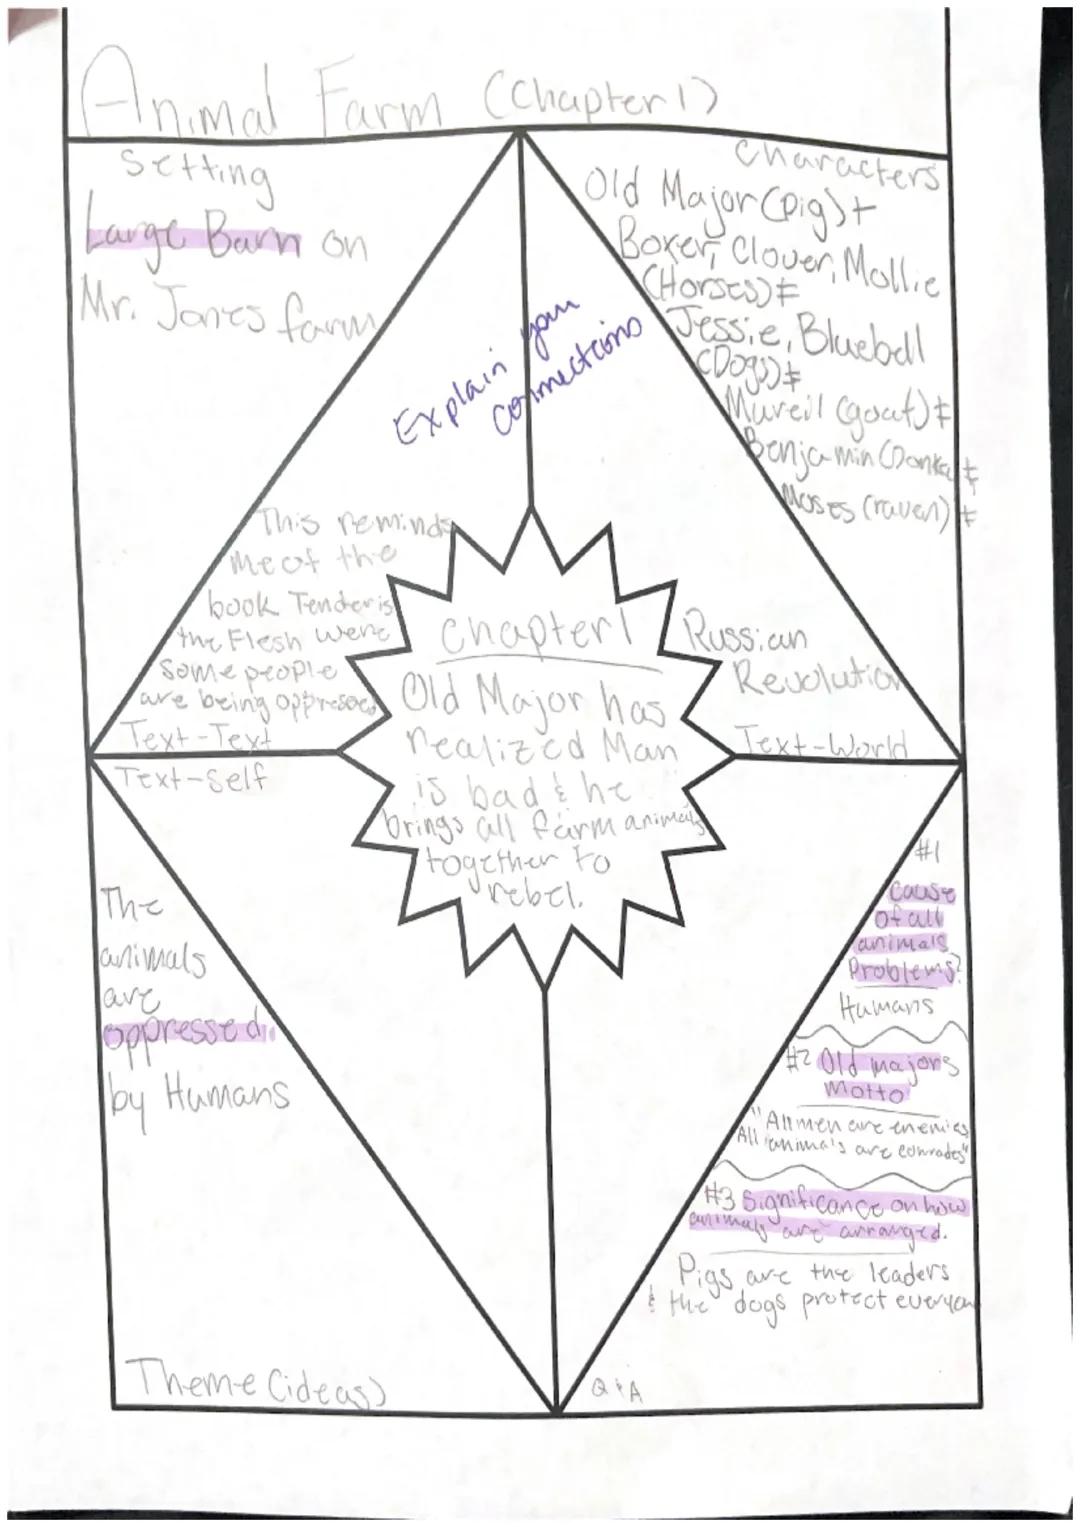 Animal Farm (Chapter 1)
Setting
Large Barn on
Mr. Jones farm
Characters
Old Major (pig) +
Boxer, Clover, Mollie
(Horses) ‡
Jessie, Bluebell
(Dogs) ‡
Mureil (goat) ‡
Benjamin (Donkey) ‡
Moses (raven) ‡
Explain your
connections
This reminds
me of the
book Tender is
the Flesh were
some people
are being oppressed
Text-Text
Russian
Revolution
Text-World
Chapter 1
Old Major has
realized Man
is bad & he
brings all farm animals
together to
rebel.
Text-Self
The
animals
are
oppressed
by Humans
Theme (ideas)
#1
Cause
of all
animals
Problems?
Humans
#2 Old majors
Motto
"All men are enemies
All animals are comrades"
#3 Significance on how
animals are arranged.
Pigs are the leaders
& the dogs protect everyone
Q & A